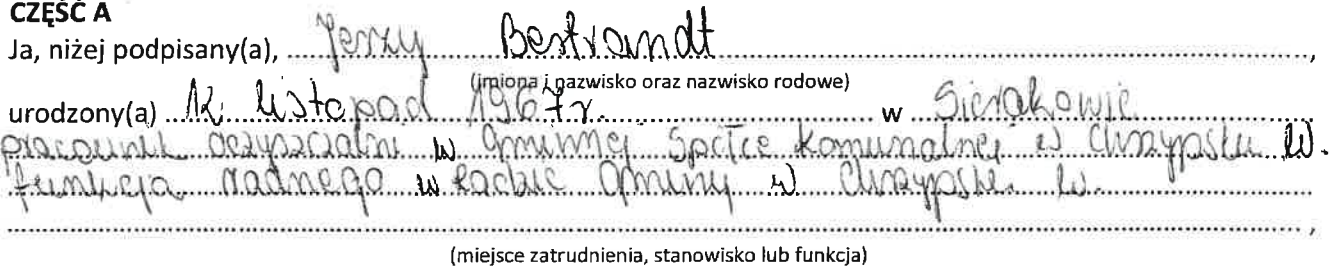 CZĘŚĆ A
Ja, niżej podpisany(a), Jerzy Bestrandt,
(imiona i nazwisko oraz nazwisko rodowe)
urodzony(a) 12. listopad 1967r. w Sierakowie
pracownik oczyszczalni w Gminnej Spółce Komunalnej w Chrzypsku W.
funkcja radnego w Radzie Gminy w Chrzypsku W.
(miejsce zatrudnienia, stanowisko lub funkcja)